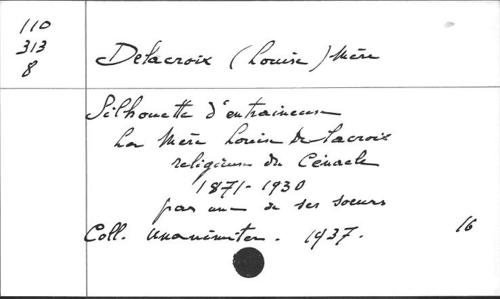 110
313
8
Delacroix (Louise) Mère
Silhouette d'entraineuse
La Mère Louise Delacroix
religieuse du Cénacle
1871-1930
par une de ses soeurs
Coll. Unanimiter. 1937.
16